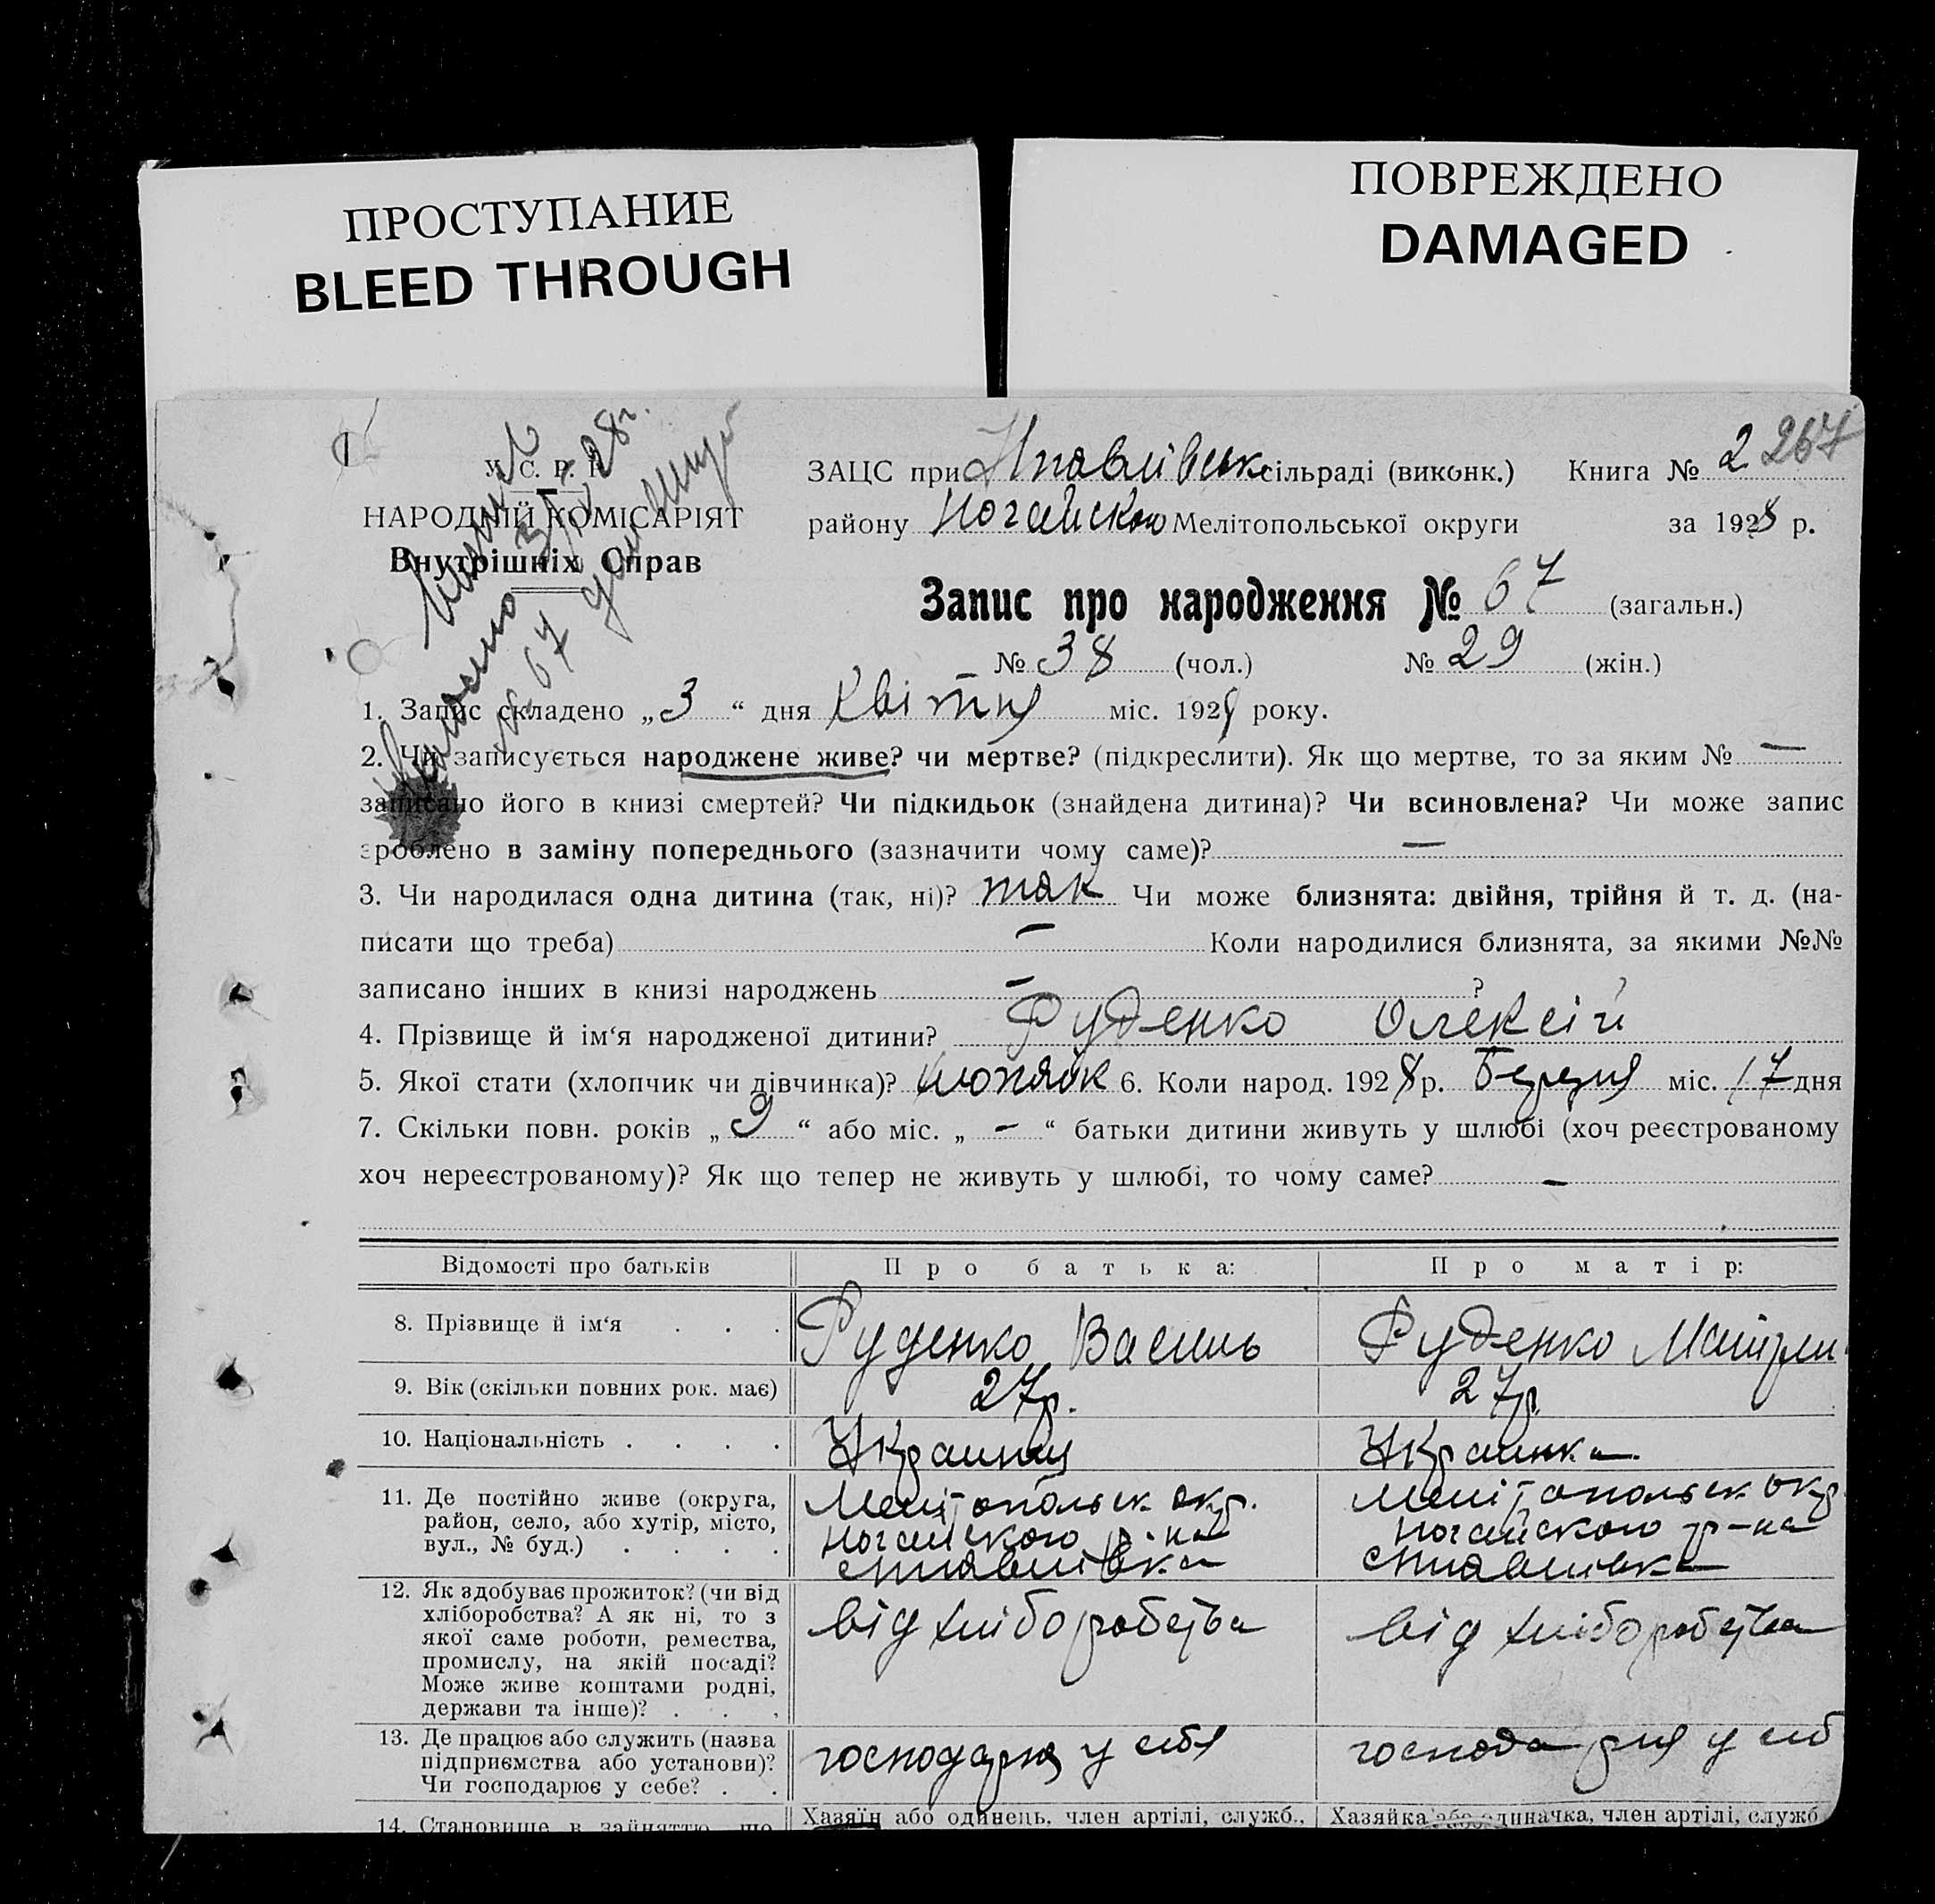 ПРОСТУПАНИЕ
BLEED THROUGH
ПОВРЕЖДЕНО
DAMAGED
У. С. Р. Р.
НАРОДНІЙ КОМІСАРІЯТ
Внутрішніх Справ
28г.
№ 67
ЗАЦС при сільраді (виконк.) Книга № 2 267
району Ногайского Мелітопольської округи за 1928 р.
Запис про народження № 67 (загальн.)
№ 38 (чол.) № 29 (жін.)
1. Запис складено „3“ дня Квітня міс. 1928 року.
2. Чи записується народжене живе? чи мертве? (підкреслити). Як що мертве, то за яким № —
записано його в книзі смертей? Чи підкидьок (знайдена дитина)? Чи всиновлена? Чи може запис
зроблено в заміну попереднього (зазначити чому саме)? —
3. Чи народилася одна дитина (так, ні)? так Чи може близнята: двійня, трійня й т. д. (на-
писати що треба) — Коли народилися близнята, за якими №№
записано інших в книзі народжень — ?
4. Прізвище й ім‘я народженої дитини? Руденко Олексій
5. Якої стати (хлопчик чи дівчинка)? 6. Коли народ. 1928 р. Березня міс. 17 дня
7. Скільки повн. років „9“ або міс. „ — “ батьки дитини живуть у шлюбі (хоч реєстрованому
хоч нереєстрованому)? Як що тепер не живуть у шлюбі, то чому саме? —
Відомості про батьків Про батька: Про матір:
8. Прізвище й ім‘я . . . Руденко Василь Руденко
9. Вік (скільки повних рок. має) 27р. 27р.
10. Національність . . . . Украинец Украинка
11. Де постійно живе (округа,
район, село, або хутір, місто,
вул., № буд.) . . . .
Мелітопольск окр.
Ногайского р-на
спавлівка
Мелітопольск окр.
Ногайского р-на
спавлівка
12. Як здобуває прожиток? (чи від
хліборобства? А як ні, то з
якої саме роботи, ремества,
промислу, на якій посаді?
Може живе коштами родні,
держави та інше)? . . .
від хліборобства
від хліборобства
13. Де працює або служить (назва
підприємства або установи)?
Чи господарює у себе? . .
господарня у себя
господарня у себ
14. Становище в зайняттю, що
Хазяїн або одинець, член артілі, служб.,
Хазяйка або одиначка, член артілі, служб